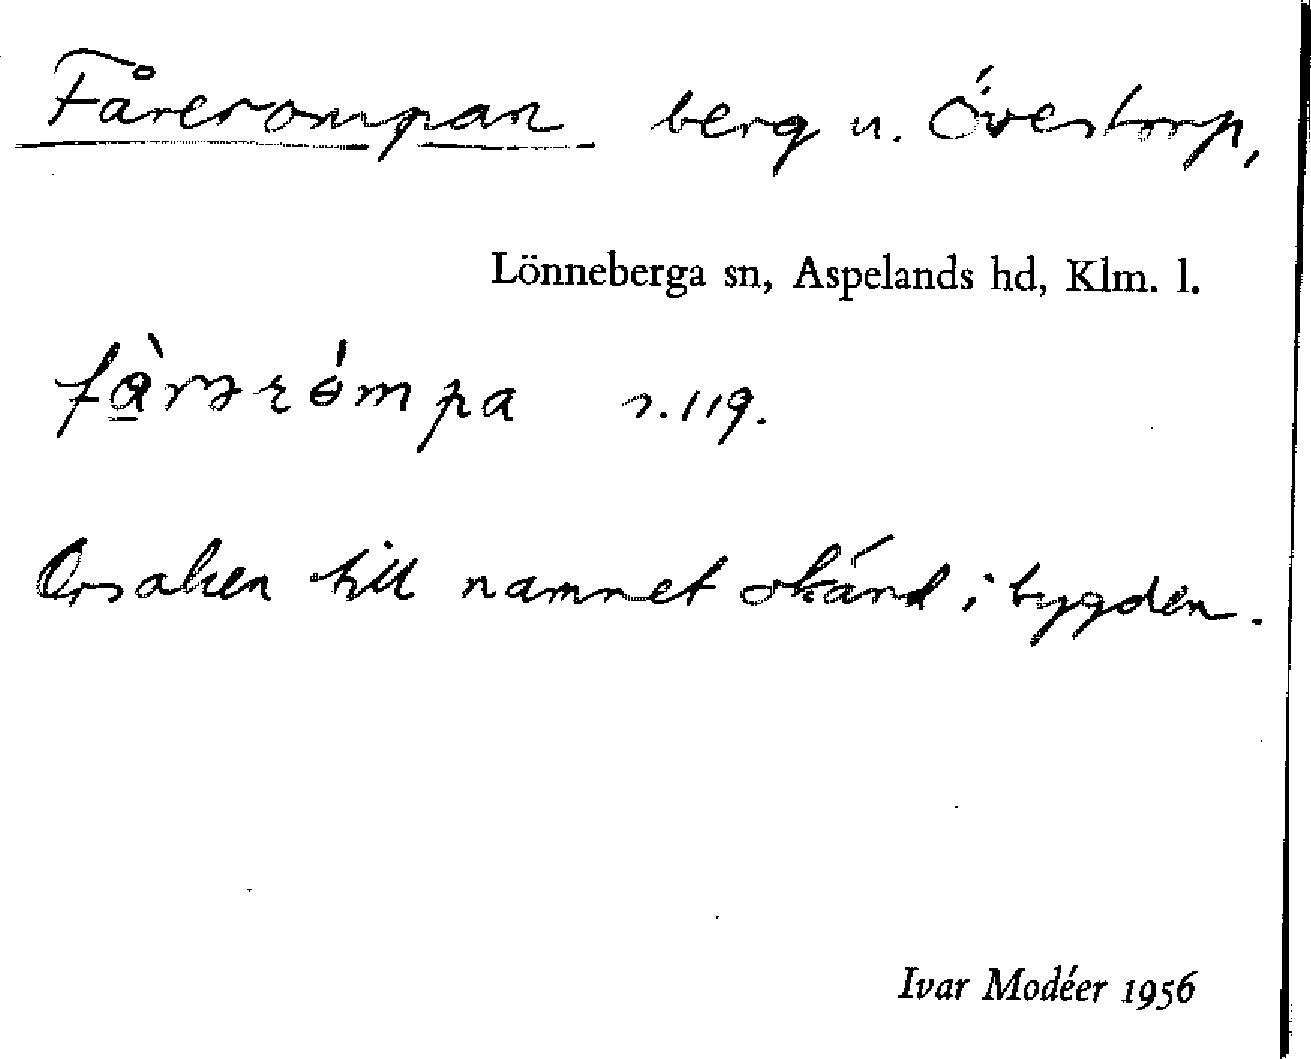 Fårerompan berg u. Övestorp,
Lönneberga sn, Aspelands hd, Klm. l.
s. 119.
Orsaken till namnet okänd i bygden.
Ivar Modéer 1956